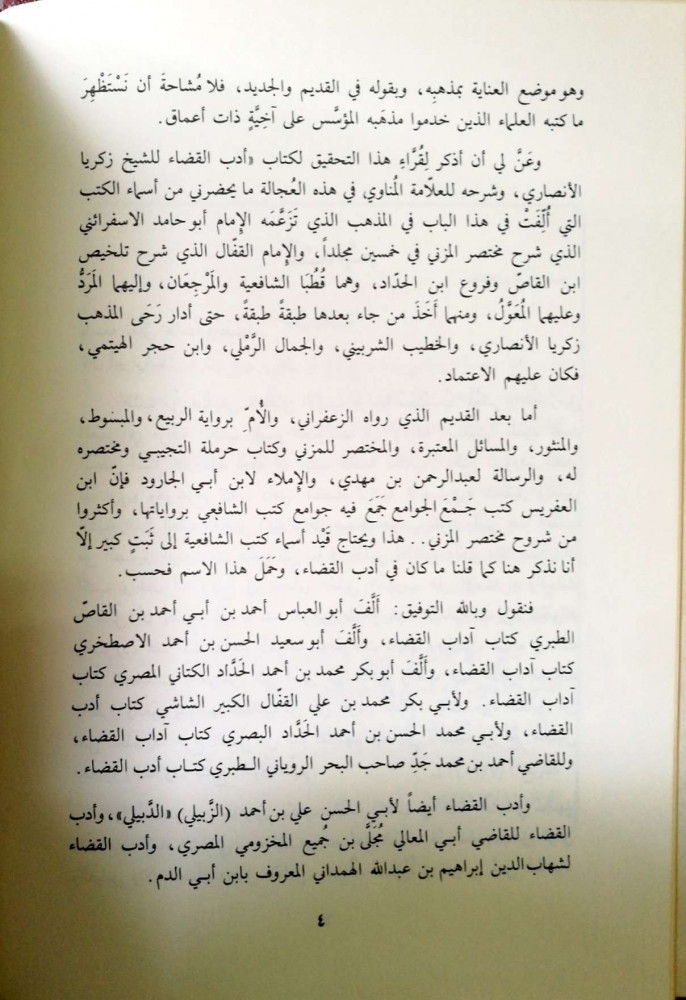 وهو موضع العناية بمذهبِه، وبقوله في القديم والجديد، فلا مُشاحةَ أن نَسْتَظْهِرَ
ما كتبه العلماء الذين خدموا مذهَبه المؤسَّس على آخِيَّةٍ ذات أعماق.
وعَنَّ لي أن أذكر لِقُرَّاءِ هذا التحقيق لكتاب «أدب القضاء للشيخ زكريا
الأنصاري، وشرحه للعلّامة المُناوي في هذه العُجالة ما يحضرني من أسماء الكتب
التي أُلِّفَتْ في هذا الباب في المذهب الذي تَزَعَّمَه الإمام أبو حامد الاسفرائني
الذي شرح مختصر المزني في خمسين مجلداً، والإمام القفّال الذي شرح تلخيص
ابن القاصّ وفروع ابن الحدّاد، وهما قُطُبَا الشافعية والمَرْجِعَان، وإليهما المَرَدُّ
وعليهما المُعَوَّلُ، ومنهما أَخَذَ من جاء بعدها طبقةً طبقةً، حتى أدار رَحَى المذهب
زكريا الأنصاري، والخطيب الشربيني، والجمال الرَّمْلي، وابن حجر الهيتمي،
فكان عليهم الاعتماد.
أما بعد القديم الذي رواه الزعفراني، والأُمِّ برواية الربيع، والمبسوط،
والمنثور، والمسائل المعتبرة، والمختصر للمزني وكتاب حرملة التجيبـي ومختصره
له، والرسالة لعبدالرحمن بن مهدي، والإملاء لابن أبـي الجارود فإنّ ابن
العفريس كتب جَـمْعَ الجوامع جَمَعَ فيه جوامع كتب الشافعي برواياتها، وأكثروا
من شروح مختصر المزني.. هذا ويحتاج قَيْد أسماء كتب الشافعية إلى ثَبَتٍ كبير إلّا
أنا نذكر هنا كما قلنا ما كان في أدب القضاء، وحَمَلَ هذا الاسم فحسب.
فنقول وبالله التوفيق: أَلَّفَ أبو العباس أحمد بن أبـي أحمد بن القاصّ
الطبري كتاب آداب القضاء، وأَلَّفَ أبو سعيد الحسن بن أحمد الاصطخري
كتاب آداب القضاء، وأَلَّفَ أبو بكر محمد بن أحمد الحَدَّاد الكناني المصري كتاب
آداب القضاء. ولأبـي بكر محمد بن علي القفّال الكبير الشاشي كتاب أدب
القضاء، ولأبـي محمد الحسن بن أحمد الحَدَّاد البصري كتاب آداب القضاء،
وللقاضي أحمد بن محمد جَدِّ صاحب البحر الروياني الـطبري كتـاب أدب القضاء.
وأدب القضاء أيضاً لأبـي الحسن علي بن أحمد (الزَّبيلي) «الدَّبيلي»، وأدب
القضاء للقاضي أبـي المعالي مُجَلَّى بن جُميع المخزومي المصري، وأدب القضاء
لشهاب الدين إبراهيم بن عبدالله الهمداني المعروف بابن أبـي الدم.
٤